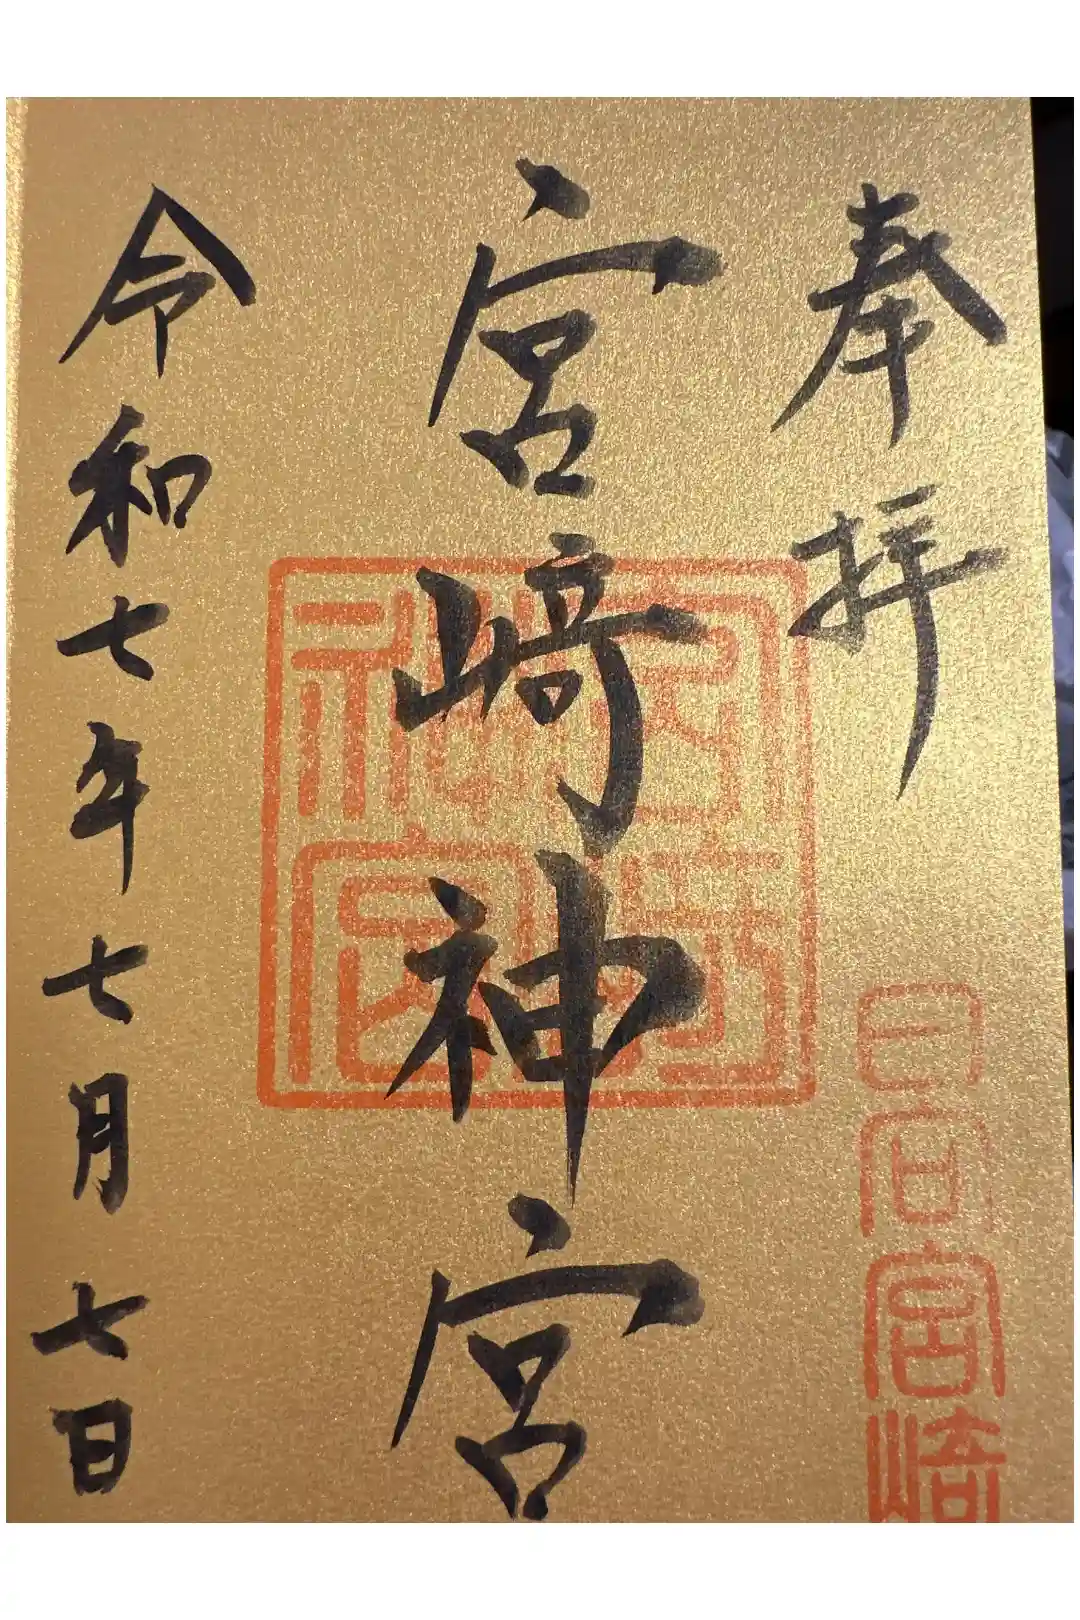 奉拝
日向宮崎
宮﨑神宮
宮崎神宮
令和七年七月七日